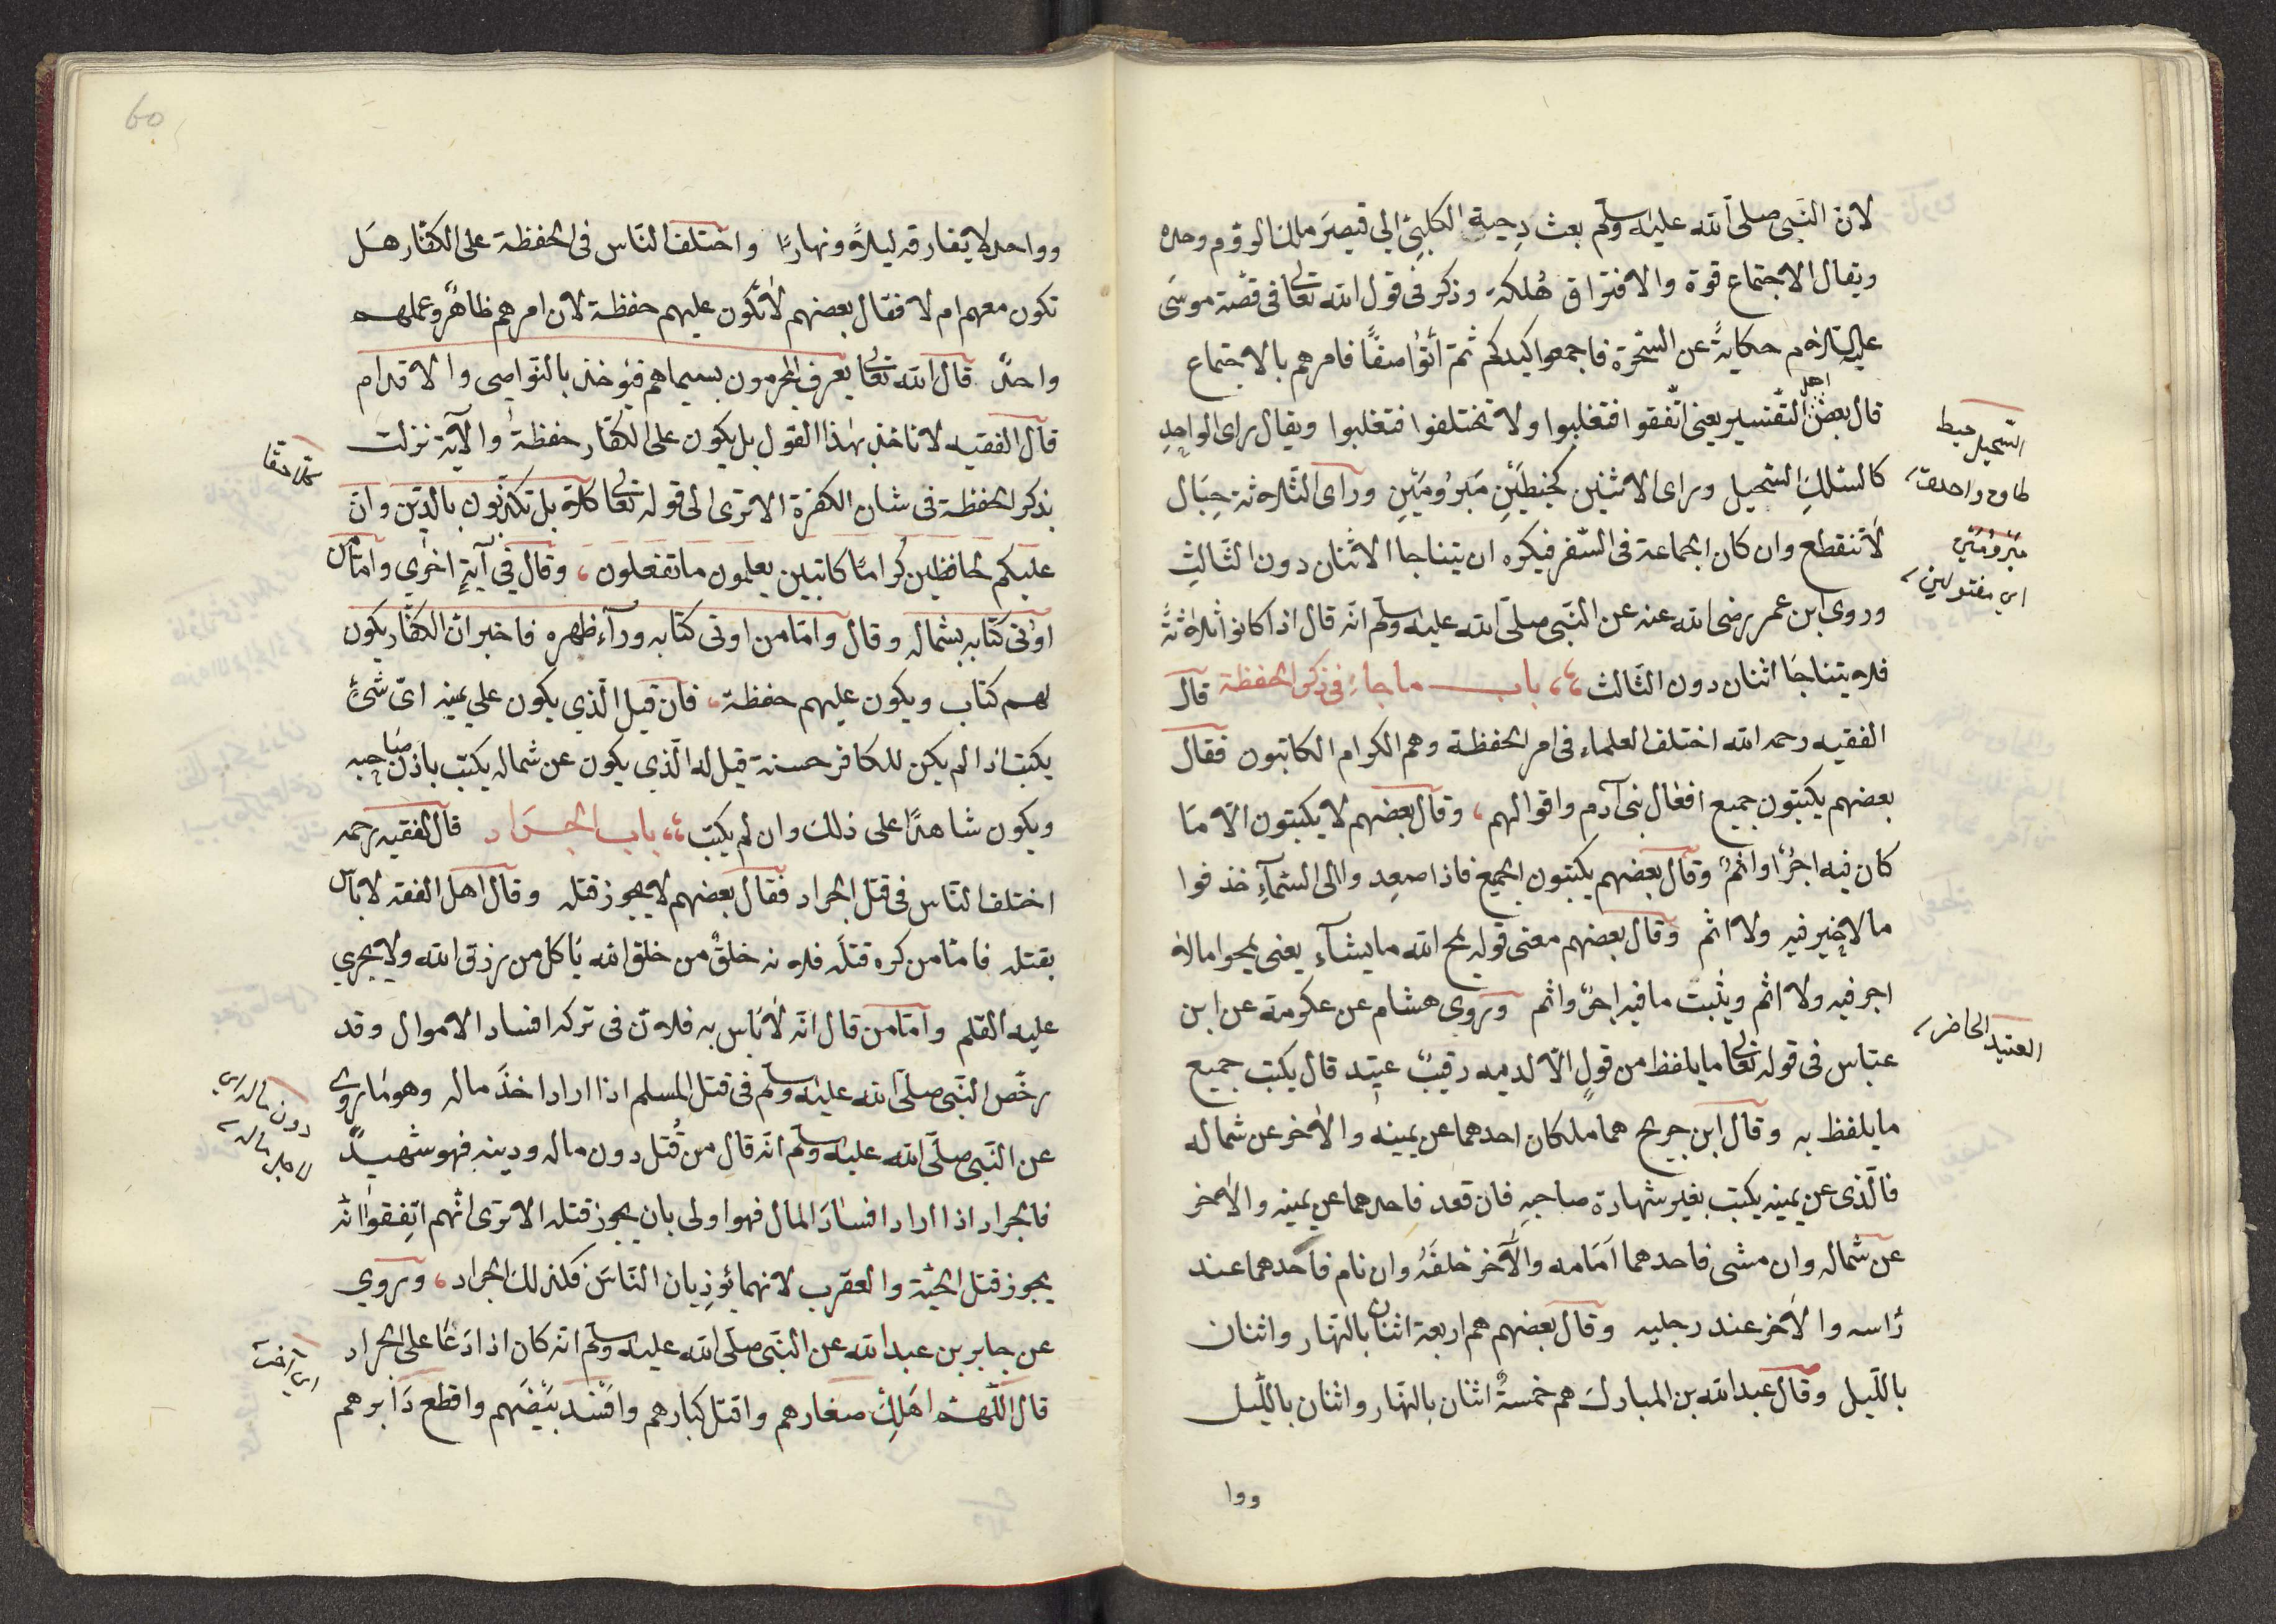 لان النبى صلى الله عليه وسلم بعث دحية الكلبى الي قيصر ملك الروم وحده
ويقال الاجتماع قوة والافتراق هلكة وذكر فى قول الله تعالى فى قصة موسى
عليه السلام حكاية عن السحرة فاجمعوا كيدكم ثمّ أتوا صفّا فامرهم بالاجتماع
قال بعض اهل التفسير يعنى اتّفقوا فتغلبوا ولا تختلفوا فتغلبوا ويقال راى الواحد
كالسلك السحيل وراى الاثنين كخيطين مبرومين وراى الثلاثة حبال
لا تنقطع وان كان الجماعة فى السّفر فيكره ان يتناجا الاثنان دون الثّالث
وروى ابن عمر رضى الله عنه عن النّبى صلّى الله عليه وسلم انّه قال اذا كانوا ثلاثة
فلا يتناجا اثنان دون الثّالث ؛؛ باب ما جاء فى ذكر الحفظة قال
الفقيه رحمه الله اختلف العلماء فى امر الحفظة وهم الكرام الكاتبون فقال
بعضهم يكتبون جميع افعال بنى آدم واقوالهم ، وقال بعضهم لا يكتبون الّا ما
كان فيه اجرٌ او اثمٌ وقال بعضهم يكتبون الجميع فاذا صعدوا الى السّمآء حذفوا
ما لا خير فيه ولا اثم وقال بعضهم معنى قوله يمح الله ما يشآء يعنى يمحوا ما لا
اجر فيه ولا اثم ويثبت ما فيه اجر واثم وروى هشام عن عكرمة عن ابن
عبّاس فى قوله تعالى ما يلفظ من قولٍ الّا لديه رقيبٌ عتيد قال يكتب جميع
ما يلفظ به وقال ابن جريج هما ملكان احدهما عن يمينه والاخر عن شماله
فالّذى عن يمينه يكتب بغير شهادة صاحبه فان قعد فاحدهما عن يمينه والاخر
عن شماله وان مشى فاحدهما امامه والآخر خلفه وان نام فاحدهما عند
رأسه والاخر عند رجليه وقال بعضهم هم اربعة اثنان بالنّهار واثنان
بالّليل وقال عبد الله بن المبارك هم خمسةٌ اثنان بالنّهار واثنان بالّليل
ووا
السّحيل خيط
طاق واحدة
مبرومين
اى مفتولين
العتيد الحاضر
وواحد لا يفارقه ليلا ونهارا واختلف النّاس فى الحفظة على الكفّار هل
تكون معهم ام لا فقال بعضهم لا تكون عليهم حفظة لان امرهم ظاهرٌ وعملهم
واحدٌ قال الله تعالى يعرف المجرمون بسيماهم فيؤخذ بالنّواصى والاقدام
قال الفقيه لا ناخذ بهذا القول بل يكون على الكفّار حفظة والآية نزلت
بذكر الحفظة فى شان الكفرة الا ترى الى قوله تعالى كلّا بل تكذّبون بالدّين وانّ
عليكم لحافظين كراما كاتبين يعلمون ما تفعلون ، وقال فى آيةٍ اخرى وامّا من
اوتى كتابه بشماله وقال وامّا من اوتى كتابه ورآء ظهره فاخبر انّ الكفّار يكون
لهم كتاب ويكون عليهم حفظة ، فان قيل الّذي يكون على يمينه اىّ شئ
يكتب اذا لم يكن للكافر حسنة قيل له الّذي يكون عن شماله يكتب باذن صاحبه
ويكون شاهدًا على ذلك وان لم يكتب ؛؛ باب الجراد قال الفقيه رحمه
اختلف النّاس فى قتل الجراد فقال بعضهم لا يجوز قتله وقال اهل الفقه لا بأس
بقتله فامّا من كره قتله فلانه خلقٌ من خلق الله يأكل من رزق الله ولا يجرى
عليه القلم وامّا من قال انّه لا بأس به فلانّ فى تركه افساد الاموال وقد
رخّص النّبى صلّى الله عليه وسلم فى قتل المسلم اذا اراد اخذ ماله وهو ما روى
عن النّبى صلّى الله عليه وسلم انّه قال من قُتل دون ماله ودينه فهو شهيدٌ
فالجراد اذا اراد افساد المال فهو اولى بان يجوز قتله الا ترى انّهم اتّفقوا انّه
يجوز قتل الحيّة والعقرب لانهما يؤذيان النّاس فكذلك الجراد ، وروي
عن جابر بن عبد الله عن النّبى صلّى الله عليه وسلم انّه كان اذا دعا على الجراد
قال اللّهمّ اهلك صغارهم واقتل كبارهم وافسد بيضهم واقطع دابرهم
دون ماله اى
لاجل ماله
60